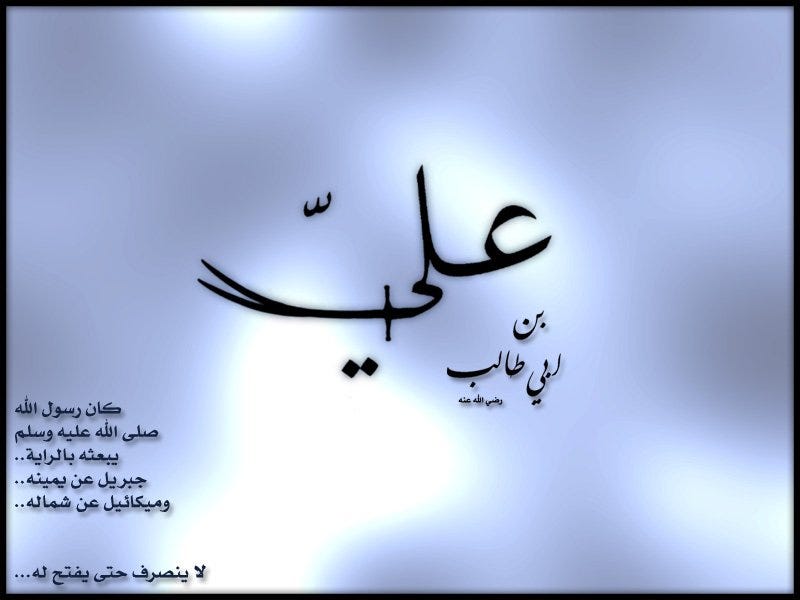 عليّ
بن
ابي طالب
رضي الله عنه
كان رسول الله
صلى الله عليه وسلم
يبعثه بالراية..
جبريل عن يمينه..
وميكائيل عن شماله..
لا ينصرف حتى يفتح له...